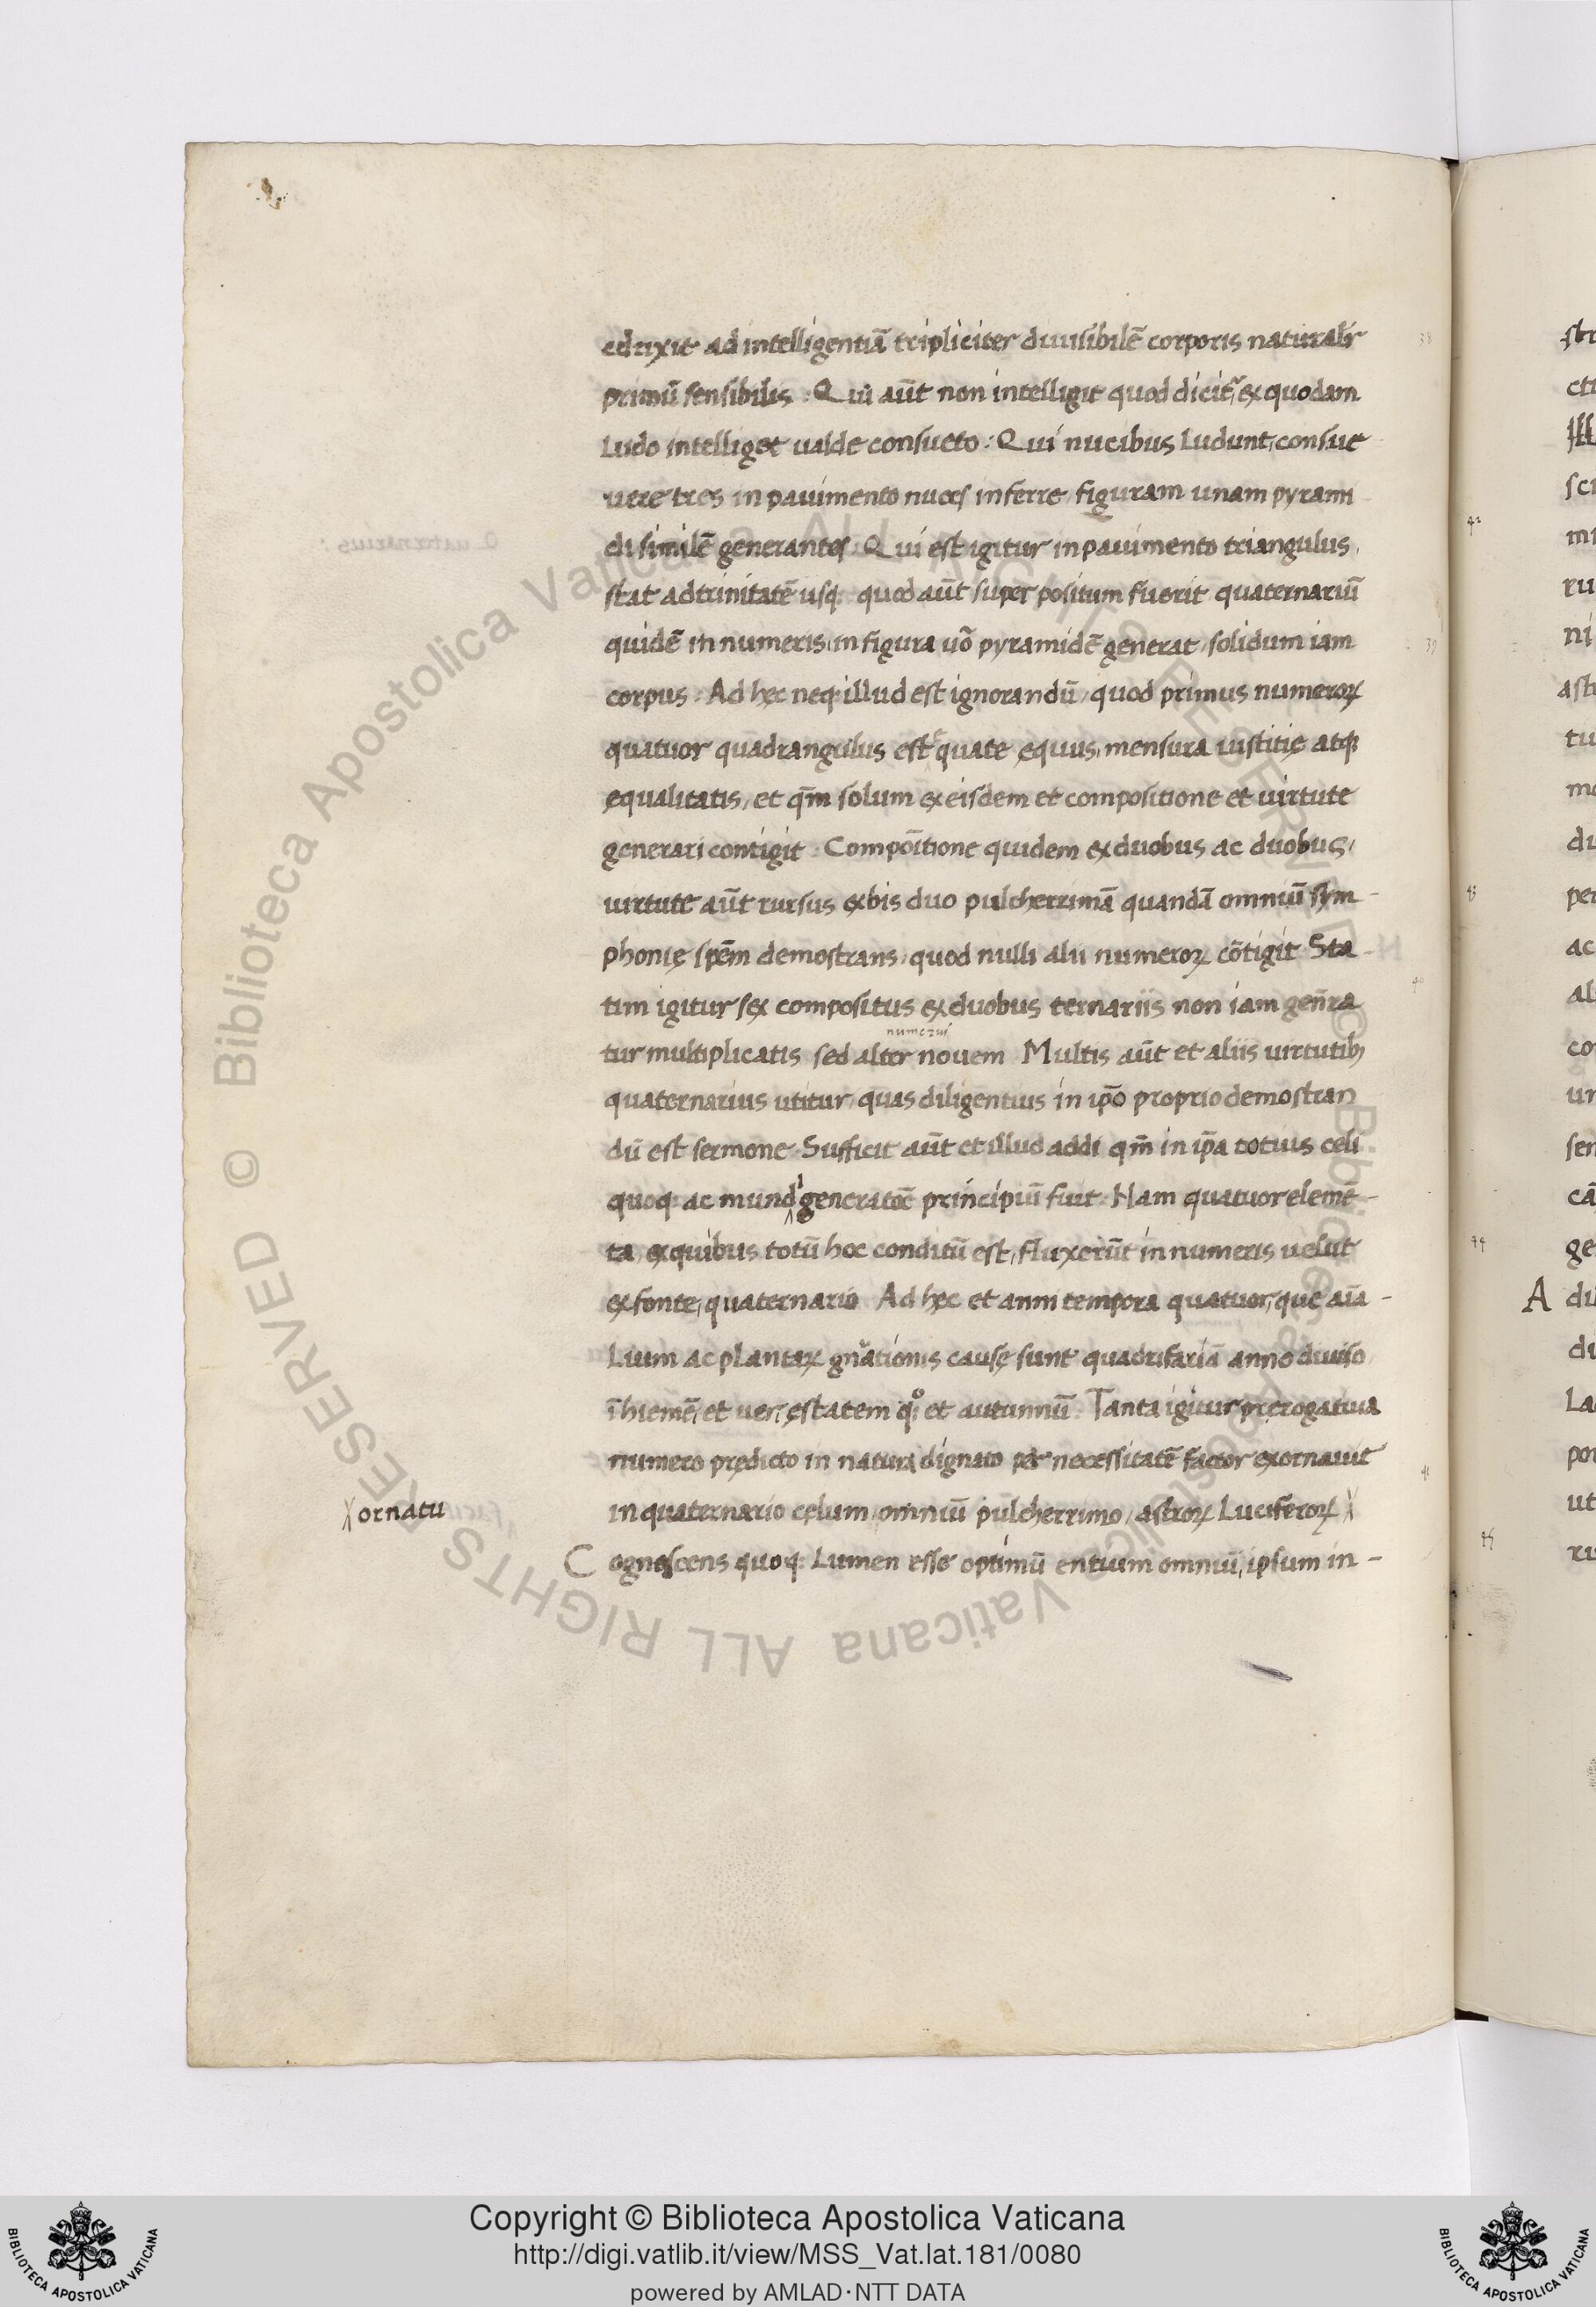 eduxit ad intelligentiā tripliciter diuisibilē corporis naturalis
primū sensibilis. Qui aūt non intelligit quod dicit᷑, ex quodam
ludo intelliget ualde consueto: Qui nucibus ludunt, consue
uere tres in pauimento nuces inferre figuram unam pyrami
di similē generantes. Qui est igitur in pauimento triangulus,
stat ad trinitatē usq: quod aūt superpositum fuerit quaternariū
quidē in numeris, in figura uō pyramidē generat, solidum iam
corpus. Ad hęc neq: illud est ignorandū, quod primus numeroꝝ
quatuor quadrangulus est ęquate ęquus, mensura iustitię atq:
ęqualitatis, et qm̄ solum ex eisdem et compositione et uirtute
generari contigit. Compoītione quidem ex duobus ac duobus,
uirtute aūt rursus ex bis duo pulcherrimā quandā omniū sym-
phonię spēm demostrans, quod nulli alii numeroꝝ cōtigit Sta-
tim igitur sex compositus ex duobus ternariis non iam gen̄ra
numerui
tur multiplicatis sed alter nouem Multis aūt et aliis uirtutib;
quaternarius utitur, quas diligentius in ip̄o proprio demostran
dū est sermone. Sufficit aūt et illud addi qm̄ in ip̄a totius celi
quoq: ac mundi generatōe principiū fuit. Nam quatuor elemē-
ta, ex quibus totū hoc conditū est, fluxerūt in numeris uelut
ex fonte, quaternario Ad hęc et anni tempora quatuor, que aīa-
lium ac plantaꝝ gnationis causę sunt quadrifariā anno diuiso
ī hiemē, et uer, ęstatem q: et autunnū. Tanta igitur prerogatiua
numero prędicto in natura dignato per necessitatē factor exornauit
in quaternario cęlum, omniū pulcherrimo, astroꝝ Luciferoꝝ
ornatu
Cognoscens quoq: Lumen esse optimū entium omniū, ipsum in-
Copyright © Biblioteca Apostolica Vaticana
http://digi.vatlib.it/view/MSS_Vat.lat.181/0080
powered by AMLAD·NTT DATA